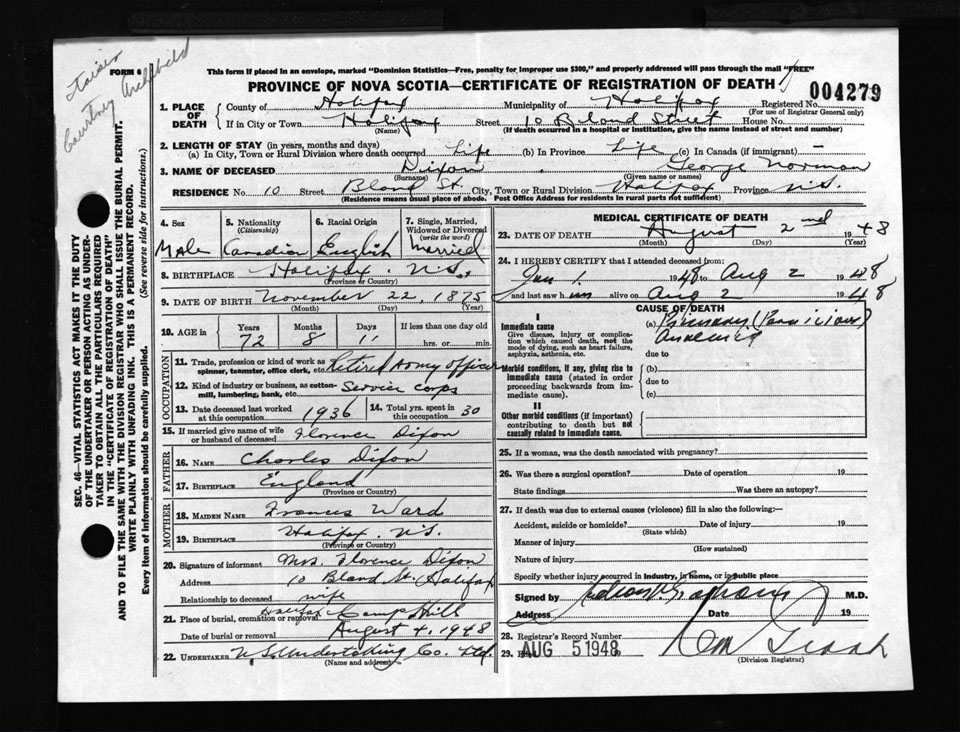 FORM 6
This form if placed in an envelope, marked "Dominion Statistics—Free, penalty for improper use $300," and properly addressed will pass through the mail "FREE"
PROVINCE OF NOVA SCOTIA—CERTIFICATE OF REGISTRATION OF DEATH
004279
1. PLACE OF DEATH County of Halifax Municipality of Halifax Registered No.
(For use of Registrar General only)
If in City or Town Halifax Street 10 Bland Street House No.
(Name) (If death occurred in a hospital or institution, give the name instead of street and number)
2. LENGTH OF STAY (in years, months and days)
(a) In City, Town or Rural Division where death occurred Life (b) In Province Life (c) In Canada (if immigrant) —
3. NAME OF DECEASED Dixon George Norman
(Surname) (Given name or names)
RESIDENCE No. 10 Street Bland St. City, Town or Rural Division Halifax Province N.S.
(Residence means usual place of abode. Post Office Address for residents in rural parts not sufficient)
4. Sex Male
5. Nationality (Citizenship) Canadian
6. Racial Origin English
7. Single, Married, Widowed or Divorced (write the word) Married
8. BIRTHPLACE Halifax N.S.
(Province or Country)
9. DATE OF BIRTH November 22, 1875
(Month) (Day) (Year)
10. AGE in Years 72 Months 8 Days 11 If less than one day old hrs. or min.
OCCUPATION
11. Trade, profession or kind of work as spinner, teamster, office clerk, etc. Retired Army Officer
12. Kind of industry or business, as cotton-mill, lumbering, bank, etc. Service Corps
13. Date deceased last worked at this occupation 1936
14. Total yrs. spent in this occupation 30
15. If married give name of wife or husband of deceased Florence Dixon
FATHER
16. NAME Charles Dixon
17. BIRTHPLACE England
(Province or Country)
MOTHER
18. MAIDEN NAME Frances Ward
19. BIRTHPLACE Halifax N.S.
(Province or Country)
20. Signature of informant Mrs. Florence Dixon
Address 10 Bland St. Halifax
Relationship to deceased wife
21. Place of burial, cremation or removal Halifax Camp Hill
Date of burial or removal August 4, 1948
22. UNDERTAKER N.S. Undertaking Co. Ltd.
(Name and address)
MEDICAL CERTIFICATE OF DEATH
23. DATE OF DEATH August 2nd 1948
(Month) (Day) (Year)
24. I HEREBY CERTIFY that I attended deceased from:
Jan 1. 1948 to Aug 2 1948
and last saw him alive on Aug 2 1948
CAUSE OF DEATH
I
Immediate cause
Give disease, injury or complication which caused death, not the mode of dying, such as heart failure, asphyxia, asthenia, etc.
(a) Primary (Pernicious) Anaemia
due to
Morbid conditions, if any, giving rise to immediate cause (stated in order proceeding backwards from immediate cause).
(b)
due to
(c)
II
Other morbid conditions (if important) contributing to death but not causally related to immediate cause.
25. If a woman, was the death associated with pregnancy?
26. Was there a surgical operation? Date of operation 19
State findings Was there an autopsy?
27. If death was due to external causes (violence) fill in also the following:—
Accident, suicide or homicide? Date of injury 19
(State which)
Manner of injury
(How sustained)
Nature of injury
Specify whether injury occurred in industry, in home, or in public place
Signed by M.D.
Address Date 19
28. Registrar's Record Number
29. AUG 5 1948
(Division Registrar)
SEC. 46—VITAL STATISTICS ACT MAKES IT THE DUTY
OF THE UNDERTAKER OR PERSON ACTING AS UNDER-
TAKER TO OBTAIN ALL THE PARTICULARS REQUIRED
IN THE "CERTIFICATE OF REGISTRATION OF DEATH"
AND TO FILE THE SAME WITH THE DIVISION REGISTRAR WHO SHALL ISSUE THE BURIAL PERMIT.
WRITE PLAINLY WITH UNFADING INK. THIS IS A PERMANENT RECORD.
Every item of information should be carefully supplied. (See reverse side for instructions.)